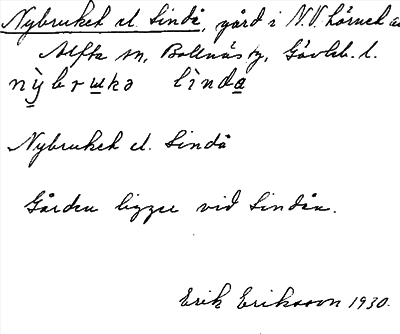 Nybruket el. Lindå, gård i N.V. hörnet av
Alfta sn, Bollnäs tg, Gävleb. l.
nỳbrukə lìnda
Nybruket el. Lindå
Gården ligger vid Lindån.
Erik Eriksson 1930.